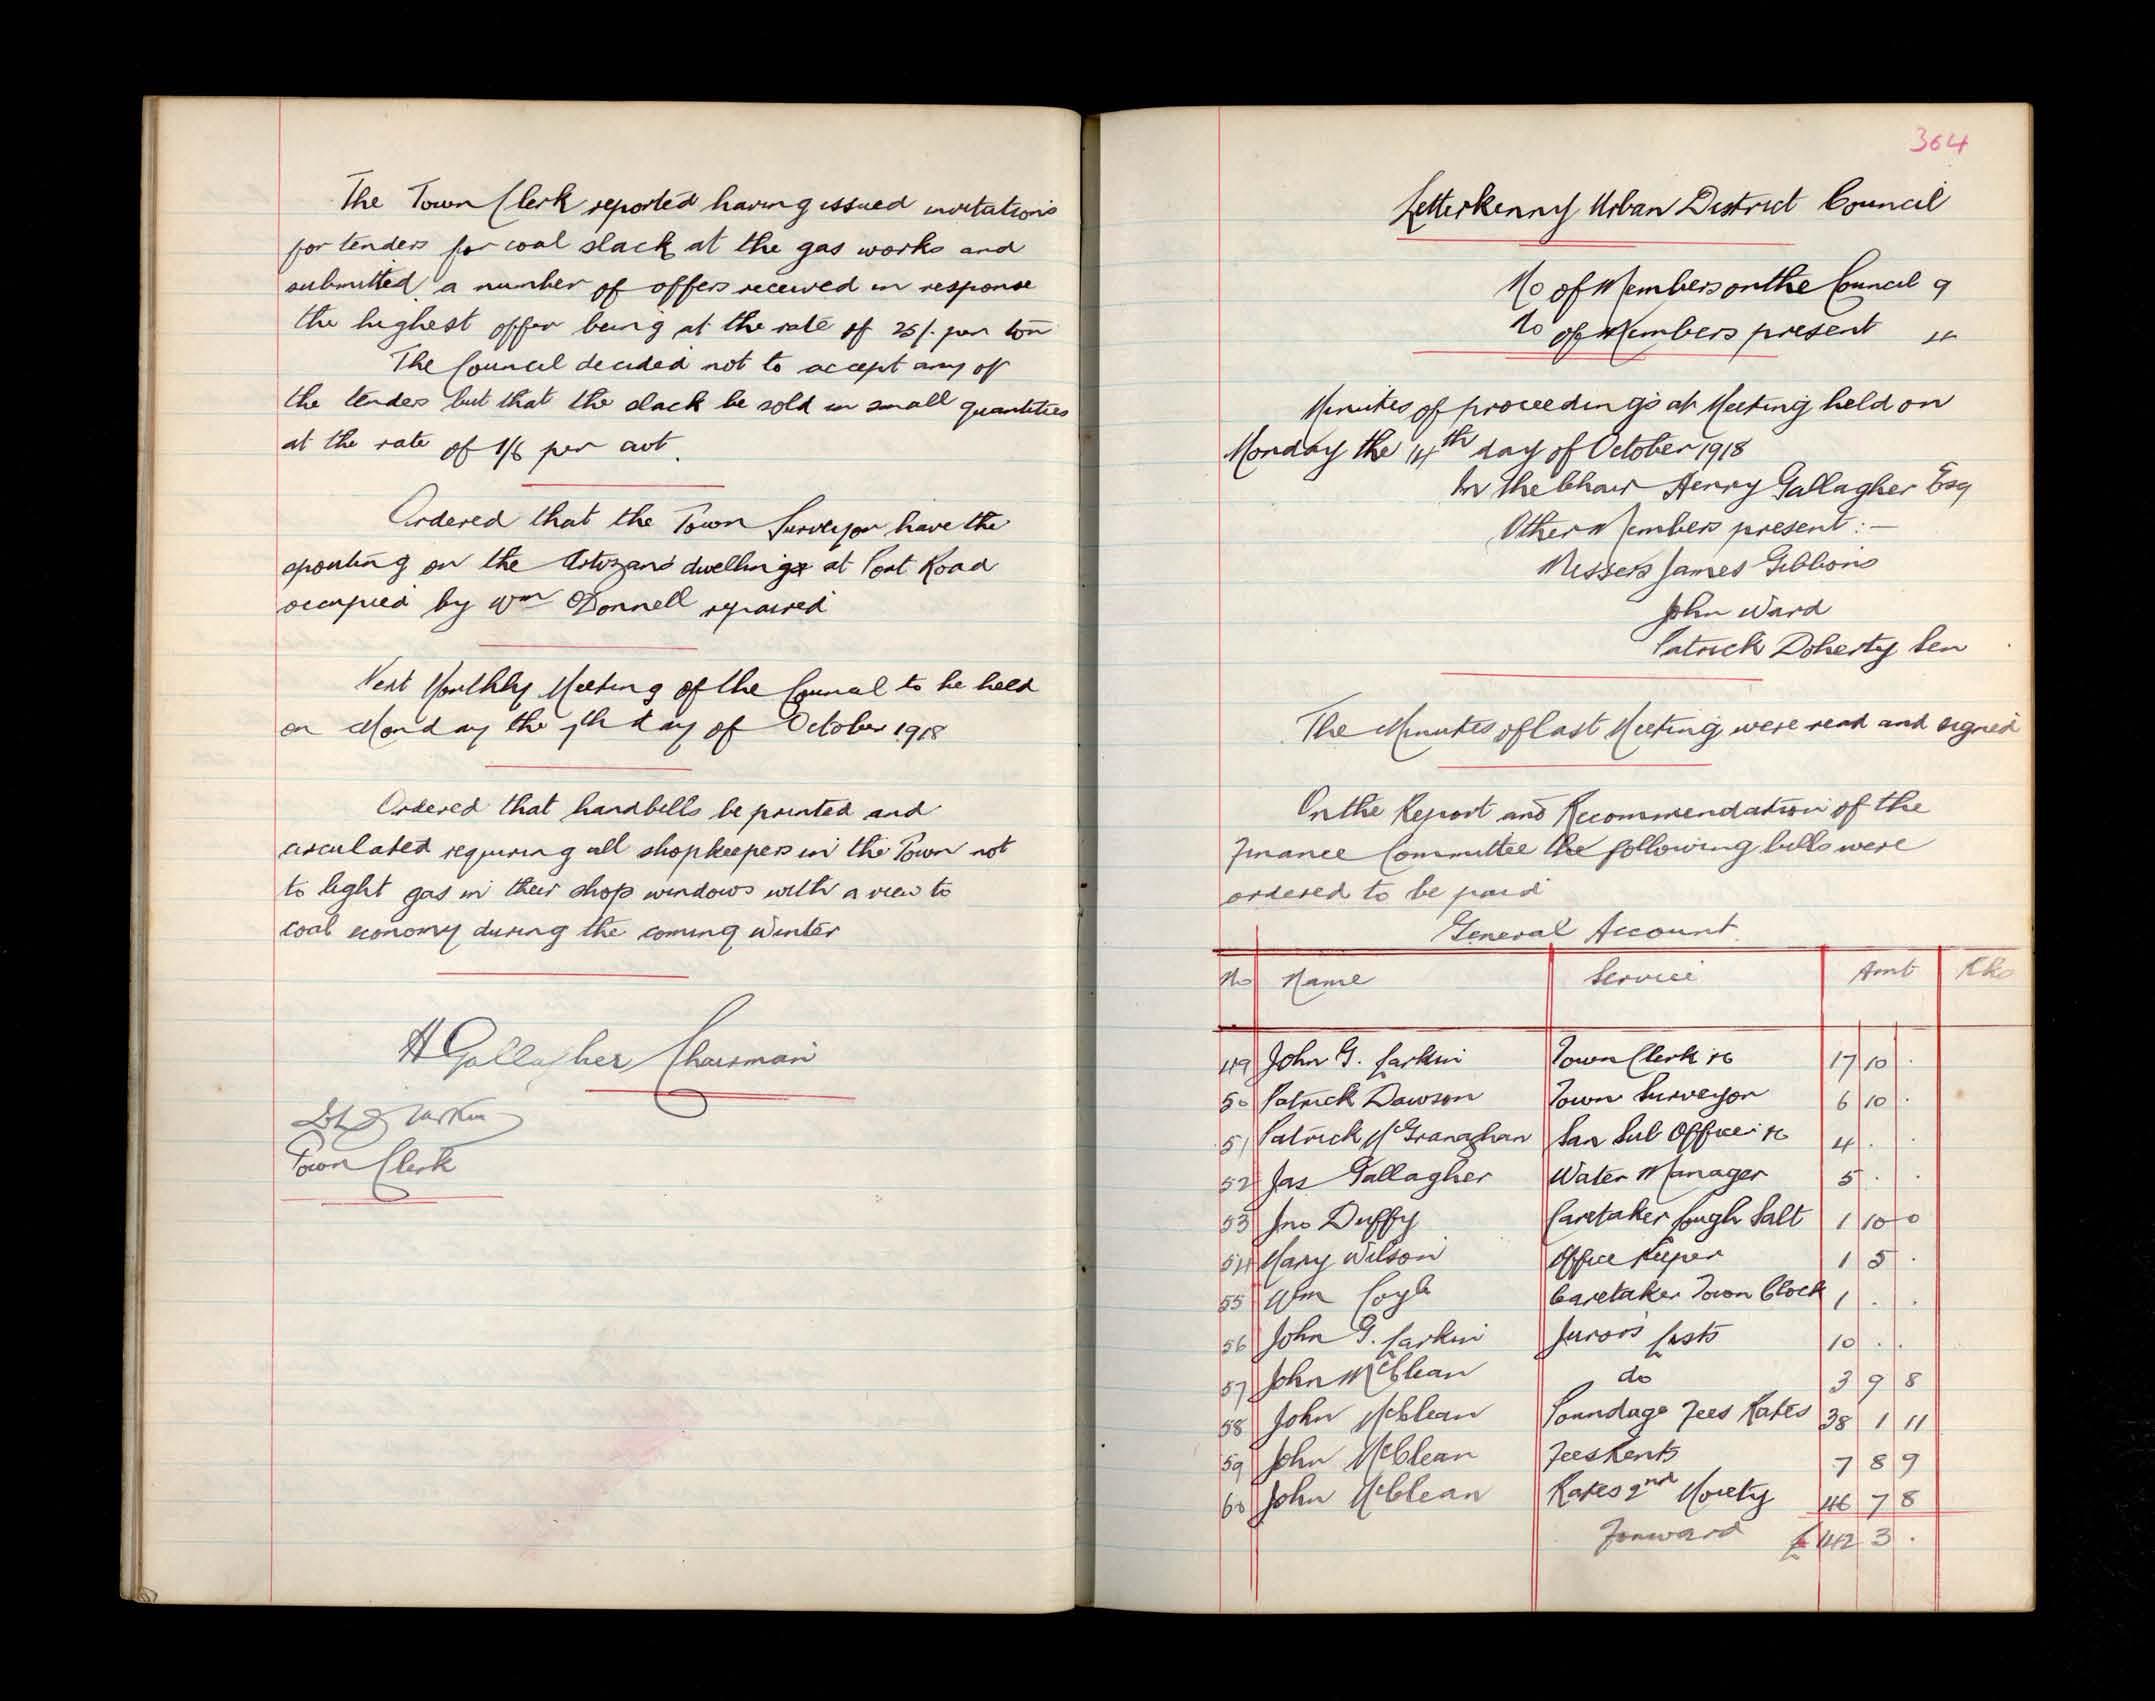 The Town Clerk reported having issued invitations
for tenders for coal slack at the gas works and
submitted a number of offers received in response
the highest offer being at the rate of 25/- per ton
The Council decided not to accept any of
the tenders but that the slack be sold in small quantities
at the rate of 1/6 per cwt.
Ordered that the Town Surveyor have the
spouting on the Artizans dwellings at Port Road
occupied by Wm O'Donnell repaired
Next Monthly Meeting of the Council to be held
on Monday the 7th day of October 1918
Ordered that handbills be printed and
circulated requiring all shopkeepers in the Town not
to light gas in their shop windows with a view to
coal economy during the coming Winter
H Gallagher Chairman
Larkin
Town Clerk
364
Letterkenny Urban District Council
No of Members on the Council 9
No of Members present 4
Minutes of proceedings at Meeting held on
Monday the 14th day of October 1918
In the Chair Henry Gallagher Esq
Other Members present :—
Messers James Gibbons
John Ward
Patrick Doherty Sen
The Minutes of last Meeting were read and signed
On the Report and Recommendation of the
Finance Committee the following bills were
ordered to be paid
General Account
No Name Service Amt Rks
49 John G. Larkin Town Clerk &c 17 10 .
50 Patrick Dawson Town Surveyor 6 10 .
51 Patrick McGranaghan San Sub Officer &c 4 . .
52 Jas Gallagher Water Manager 5 . .
53 Jno Duffy Caretaker Lough Salt 1 10 0
54 Mary Wilson Office Keeper 1 5 .
55 Wm Coyle Caretaker Town Clock 1 . .
56 John G. Larkin Jurors Lists 10 . .
57 John McClean do 3 9 8
58 John McClean Poundage Fees Rates 38 1 11
59 John McClean Fees Rents 7 8 9
60 John McClean Rates 2nd Moiety 46 7 8
Forward £ 142 3 .